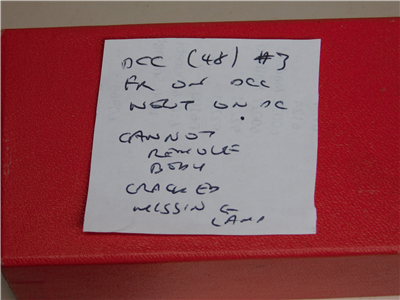 DCC (48) #3
FR ON DCC
NEUT ON DC
CANNOT
REMOVE
BODY
CRACKED
MISSING
LAMP